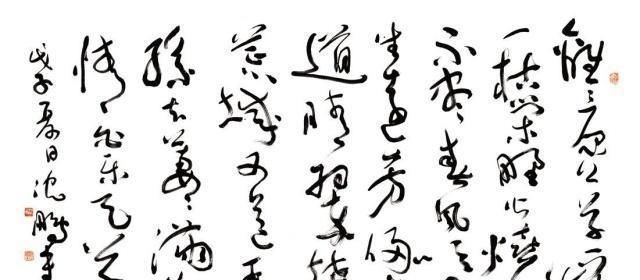 離離原上草一
一枯榮野火燒
不盡春風
生遠芳侵
道晴翠接
荒城又送王
孫去萋萋滿
情 白樂天
戊子夏日沈鵬書